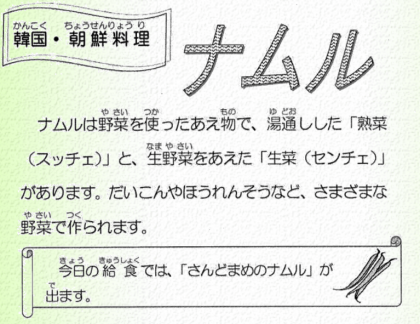 韓国・朝鮮料理
ナムル
ナムルは野菜を使ったあえ物で、湯通しした「熟菜
（スッチェ）」と、生野菜をあえた「生菜（センチェ）」
があります。だいこんやほうれんそうなど、さまざまな
野菜で作られます。
今日の給食では、「さんどまめのナムル」が
出ます。